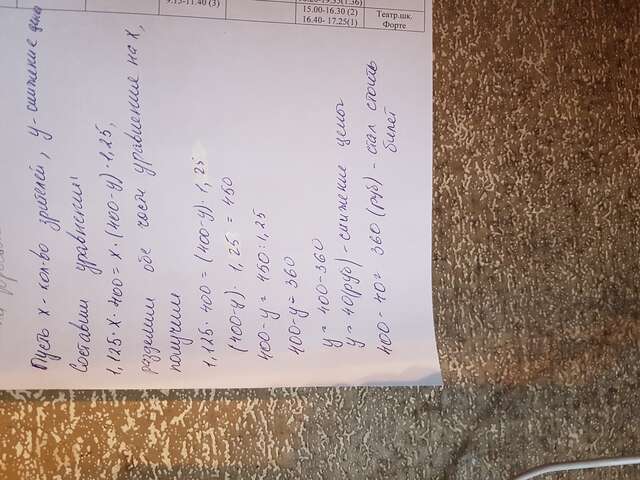 на
Пусть х - кол-во зрителей, у - снижение цены
Составим уравнение:
1,125·х·400 = х·(400-у)·1,25,
разделим обе части уравнения на х,
получим
1,125·400 = (400-у)·1,25
(400-у)·1,25 = 450
400-у = 450:1,25
400-у = 360
у = 400-360
у = 40(руб) - снижение цены
400-40= 360 (руб) - стал стоить
билет
15.00-16.30 (2)
16.40- 17.25(1)
Театр.шк.
Форте